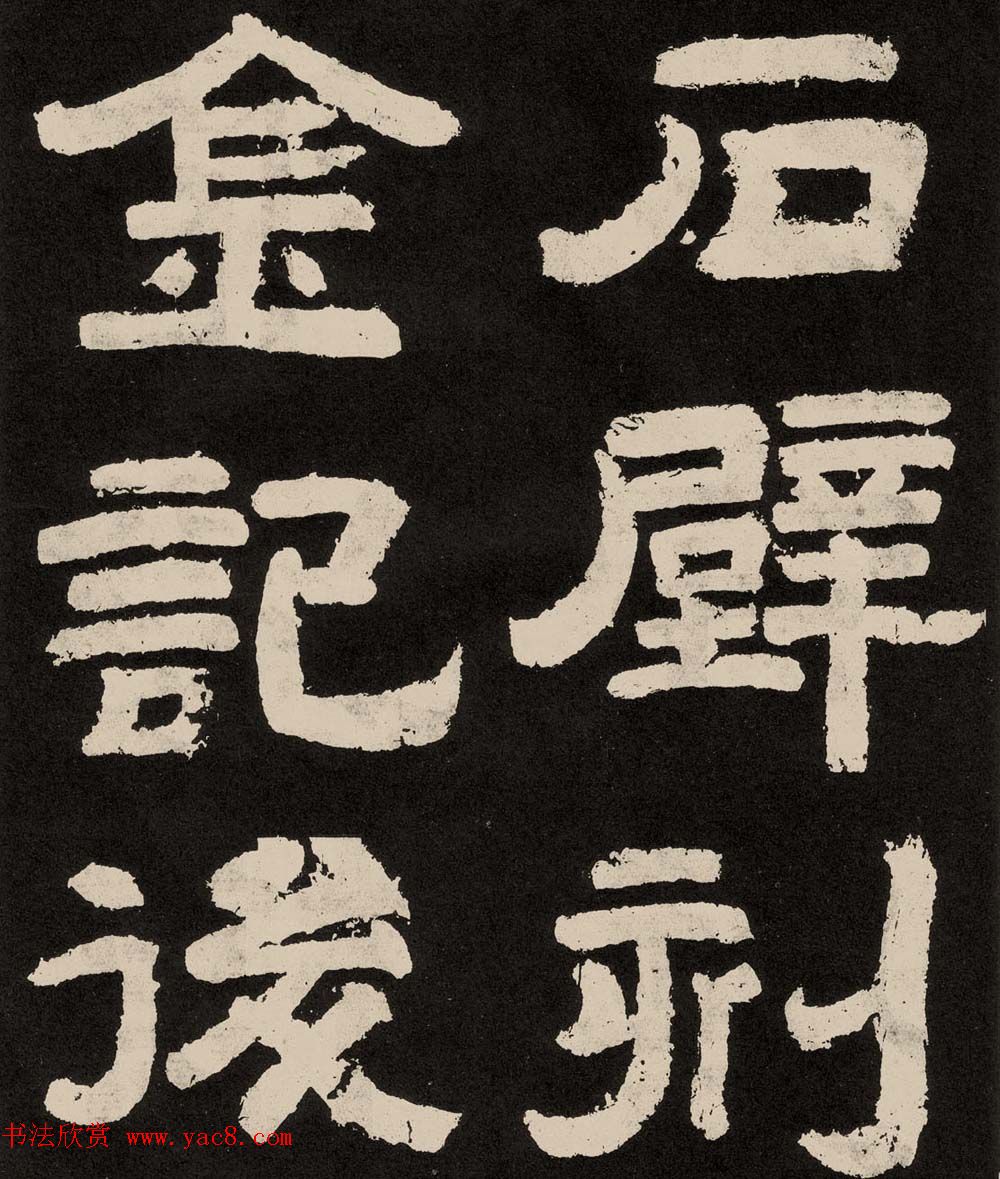 石壁
金記後
书法欣赏 www.yac8.com